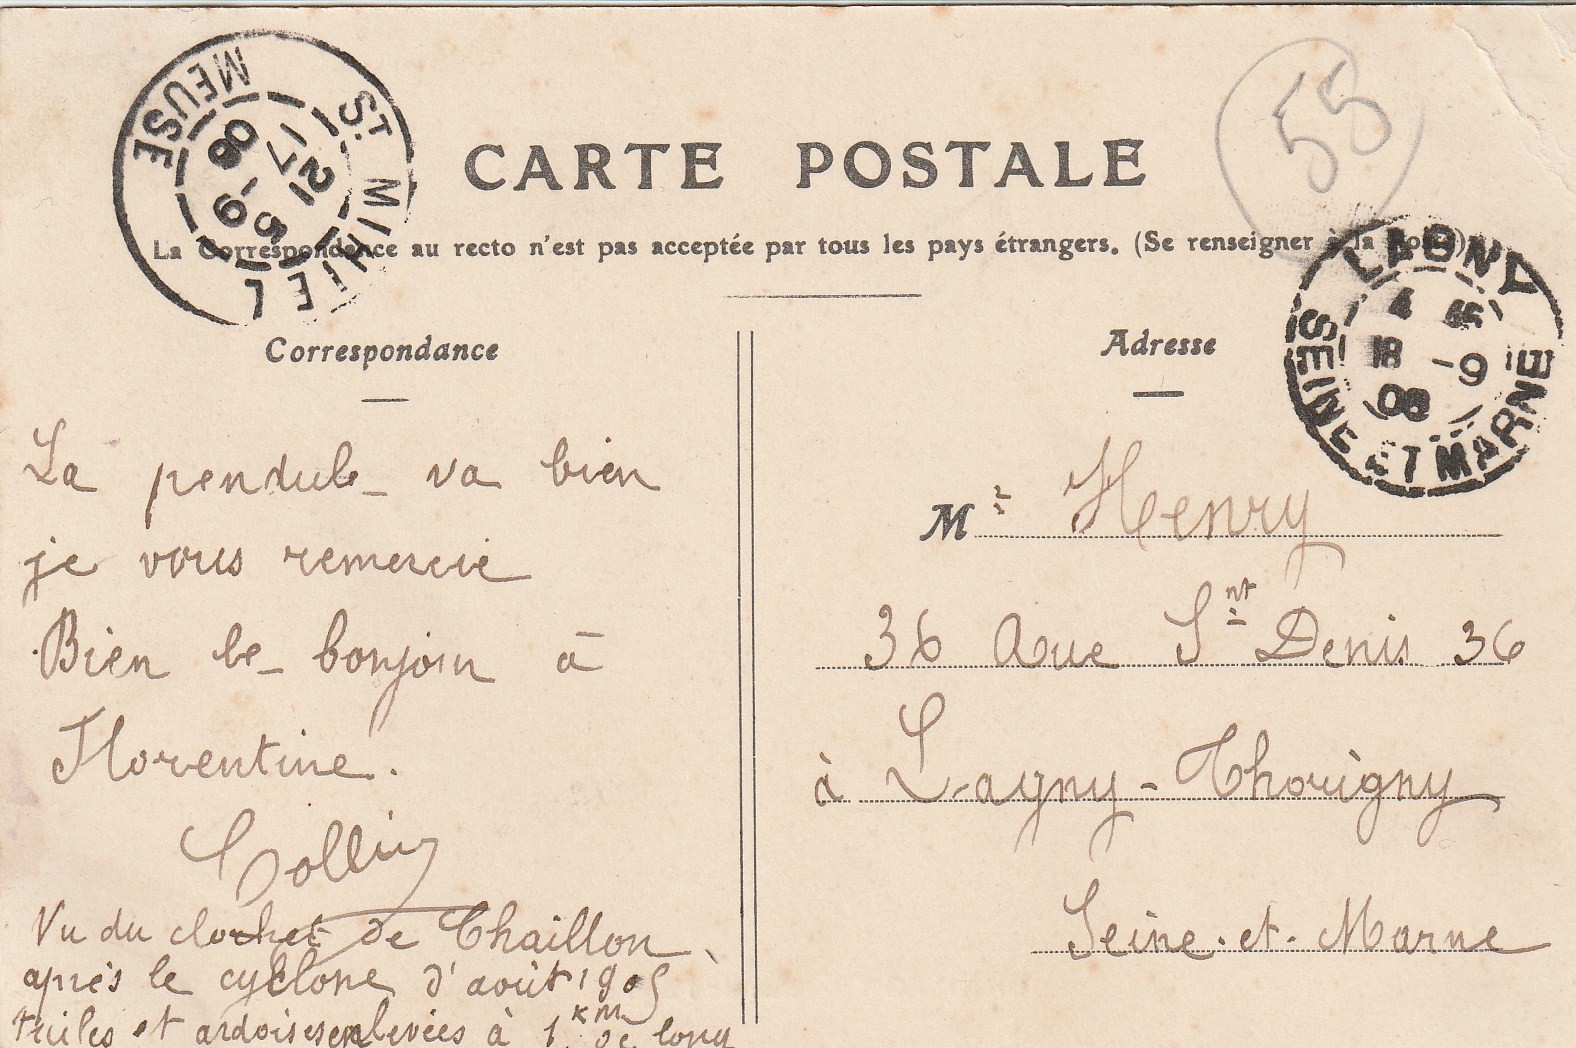 CARTE POSTALE
La Correspondance au recto n'est pas acceptée par tous les pays étrangers. (Se renseigner à la Poste)
ST MIHIEL
MEUSE
17
21 -9
08
55
LAGNY
18 -9
08
SEINE ET MARNE
Correspondance
La pendule va bien
je vous remercie
Bien le bonjour à
Florentine.
Collin
Vu du clocher de Chaillon
après le cyclone d'août 1905
tuiles et ardoises enlevées à 1 KM de long
Adresse
Mr Henry
36 Rue St Denis 36
à Lagny-Thorigny
Seine-et-Marne